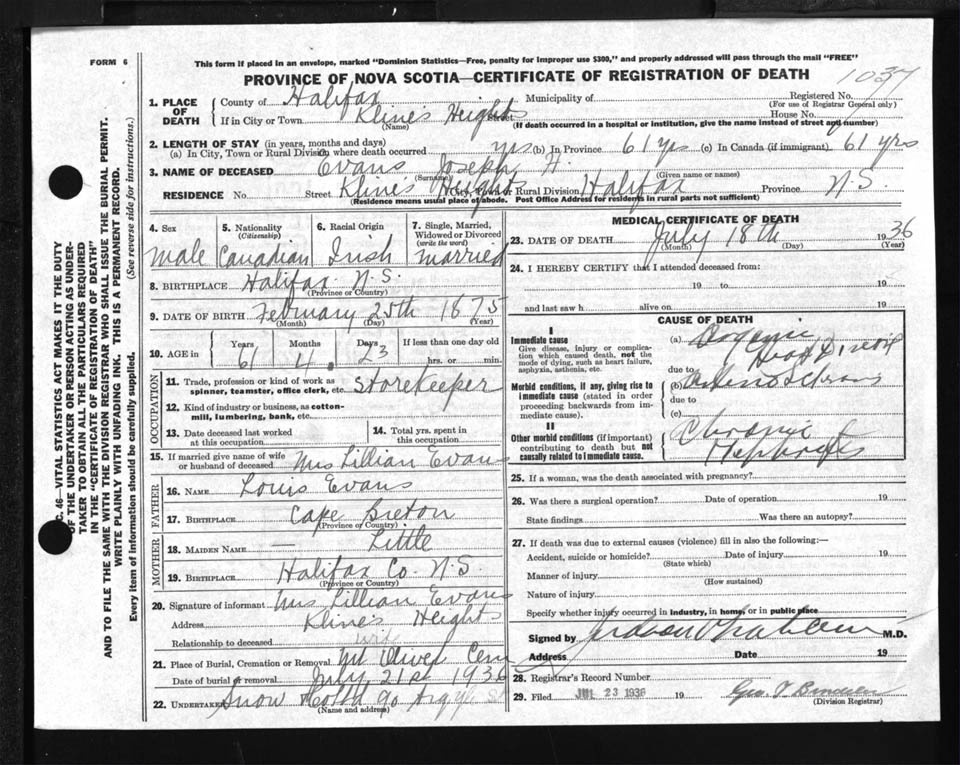 FORM 6
This form if placed in an envelope, marked "Dominion Statistics—Free, penalty for improper use $300," and properly addressed will pass through the mail "FREE"
PROVINCE OF NOVA SCOTIA—CERTIFICATE OF REGISTRATION OF DEATH
1037
1. PLACE OF DEATH { County of Halifax Municipality of Registered No.
(For use of Registrar General only)
If in City or Town Kline's Heights Street House No.
(Name) (If death occurred in a hospital or institution, give the name instead of street and number)
2. LENGTH OF STAY (in years, months and days)
(a) In City, Town or Rural Division where death occurred yrs (b) In Province 61 yrs (c) In Canada (if immigrant) 61 yrs
3. NAME OF DECEASED Evans Joseph H.
(Surname) (Given name or names)
RESIDENCE No. Street Kline's Heights City, Town or Rural Division Halifax Province N.S.
(Residence means usual place of abode. Post Office Address for residents in rural parts not sufficient)
4. Sex
male
5. Nationality
(Citizenship)
Canadian
6. Racial Origin
Irish
7. Single, Married, Widowed or Divorced
(write the word)
married
8. BIRTHPLACE Halifax N.S.
(Province or Country)
9. DATE OF BIRTH February 25th 1875
(Month) (Day) (Year)
10. AGE in Years Months Days If less than one day old
61 4 23 hrs. or min.
OCCUPATION
11. Trade, profession or kind of work as spinner, teamster, office clerk, etc. Storekeeper
12. Kind of industry or business, as cotton-mill, lumbering, bank, etc.
13. Date deceased last worked at this occupation
14. Total yrs. spent in this occupation
15. If married give name of wife or husband of deceased Mrs Lillian Evans
FATHER
16. NAME Louis Evans
17. BIRTHPLACE Cape Breton
(Province or Country)
MOTHER
18. MAIDEN NAME — Little
19. BIRTHPLACE Halifax Co. N.S.
(Province or Country)
20. Signature of informant Mrs Lillian Evans
Address Kline's Heights
Relationship to deceased wife
21. Place of Burial, Cremation or Removal Mt Olivet Cem
Date of burial or removal July 21st 1936
22. UNDERTAKER Snow & Co Ltd 90 Argyle St
(Name and address)
MEDICAL CERTIFICATE OF DEATH
23. DATE OF DEATH July 18th 1936
(Month) (Day) (Year)
24. I HEREBY CERTIFY that I attended deceased from:
19 to 19
and last saw h alive on 19
CAUSE OF DEATH
I
Immediate cause
Give disease, injury or complication which caused death, not the mode of dying, such as heart failure, asphyxia, asthenia, etc.
(a) Organic Heart Disease
due to
Morbid conditions, if any, giving rise to immediate cause (stated in order proceeding backwards from immediate cause).
(b)
due to
(c)
II
Other morbid conditions (if important) contributing to death but not causally related to immediate cause.
Chronic
Nephritis
25. If a woman, was the death associated with pregnancy?
26. Was there a surgical operation? Date of operation 19
State findings Was there an autopsy?
27. If death was due to external causes (violence) fill in also the following:—
Accident, suicide or homicide? Date of injury 19
(State which)
Manner of injury
(How sustained)
Nature of injury
Specify whether injury occurred in industry, in home, or in public place
Signed by M.D.
Address Date 19
28. Registrar's Record Number
29. Filed JUL 23 1936 19
(Division Registrar)
C. 46—VITAL STATISTICS ACT MAKES IT THE DUTY
OF THE UNDERTAKER OR PERSON ACTING AS UNDER-
TAKER TO OBTAIN ALL THE PARTICULARS REQUIRED
IN THE "CERTIFICATE OF REGISTRATION OF DEATH"
AND TO FILE THE SAME WITH THE DIVISION REGISTRAR WHO SHALL ISSUE THE BURIAL PERMIT.
WRITE PLAINLY WITH UNFADING INK. THIS IS A PERMANENT RECORD.
Every item of information should be carefully supplied. (See reverse side for instructions.)